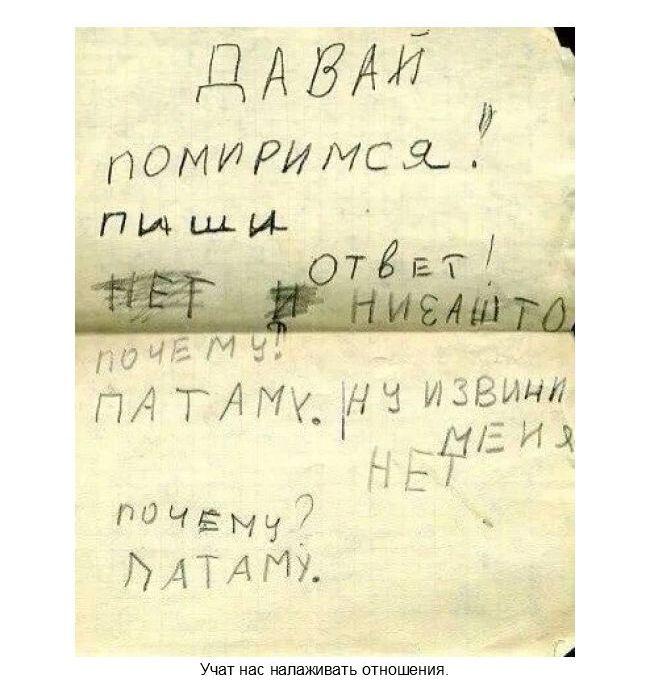 ДАВАЙ
ПОМИРИМСЯ!
ПИШИ
ОТВЕТ!
НЕТ И НИЕАШТО
ПОЧЕМУ!
ПАТАМУ. НУ ИЗВИНИ
МЕНЯ
НЕТ
ПОЧЕМУ?
ПАТАМУ.
Учат нас налаживать отношения.